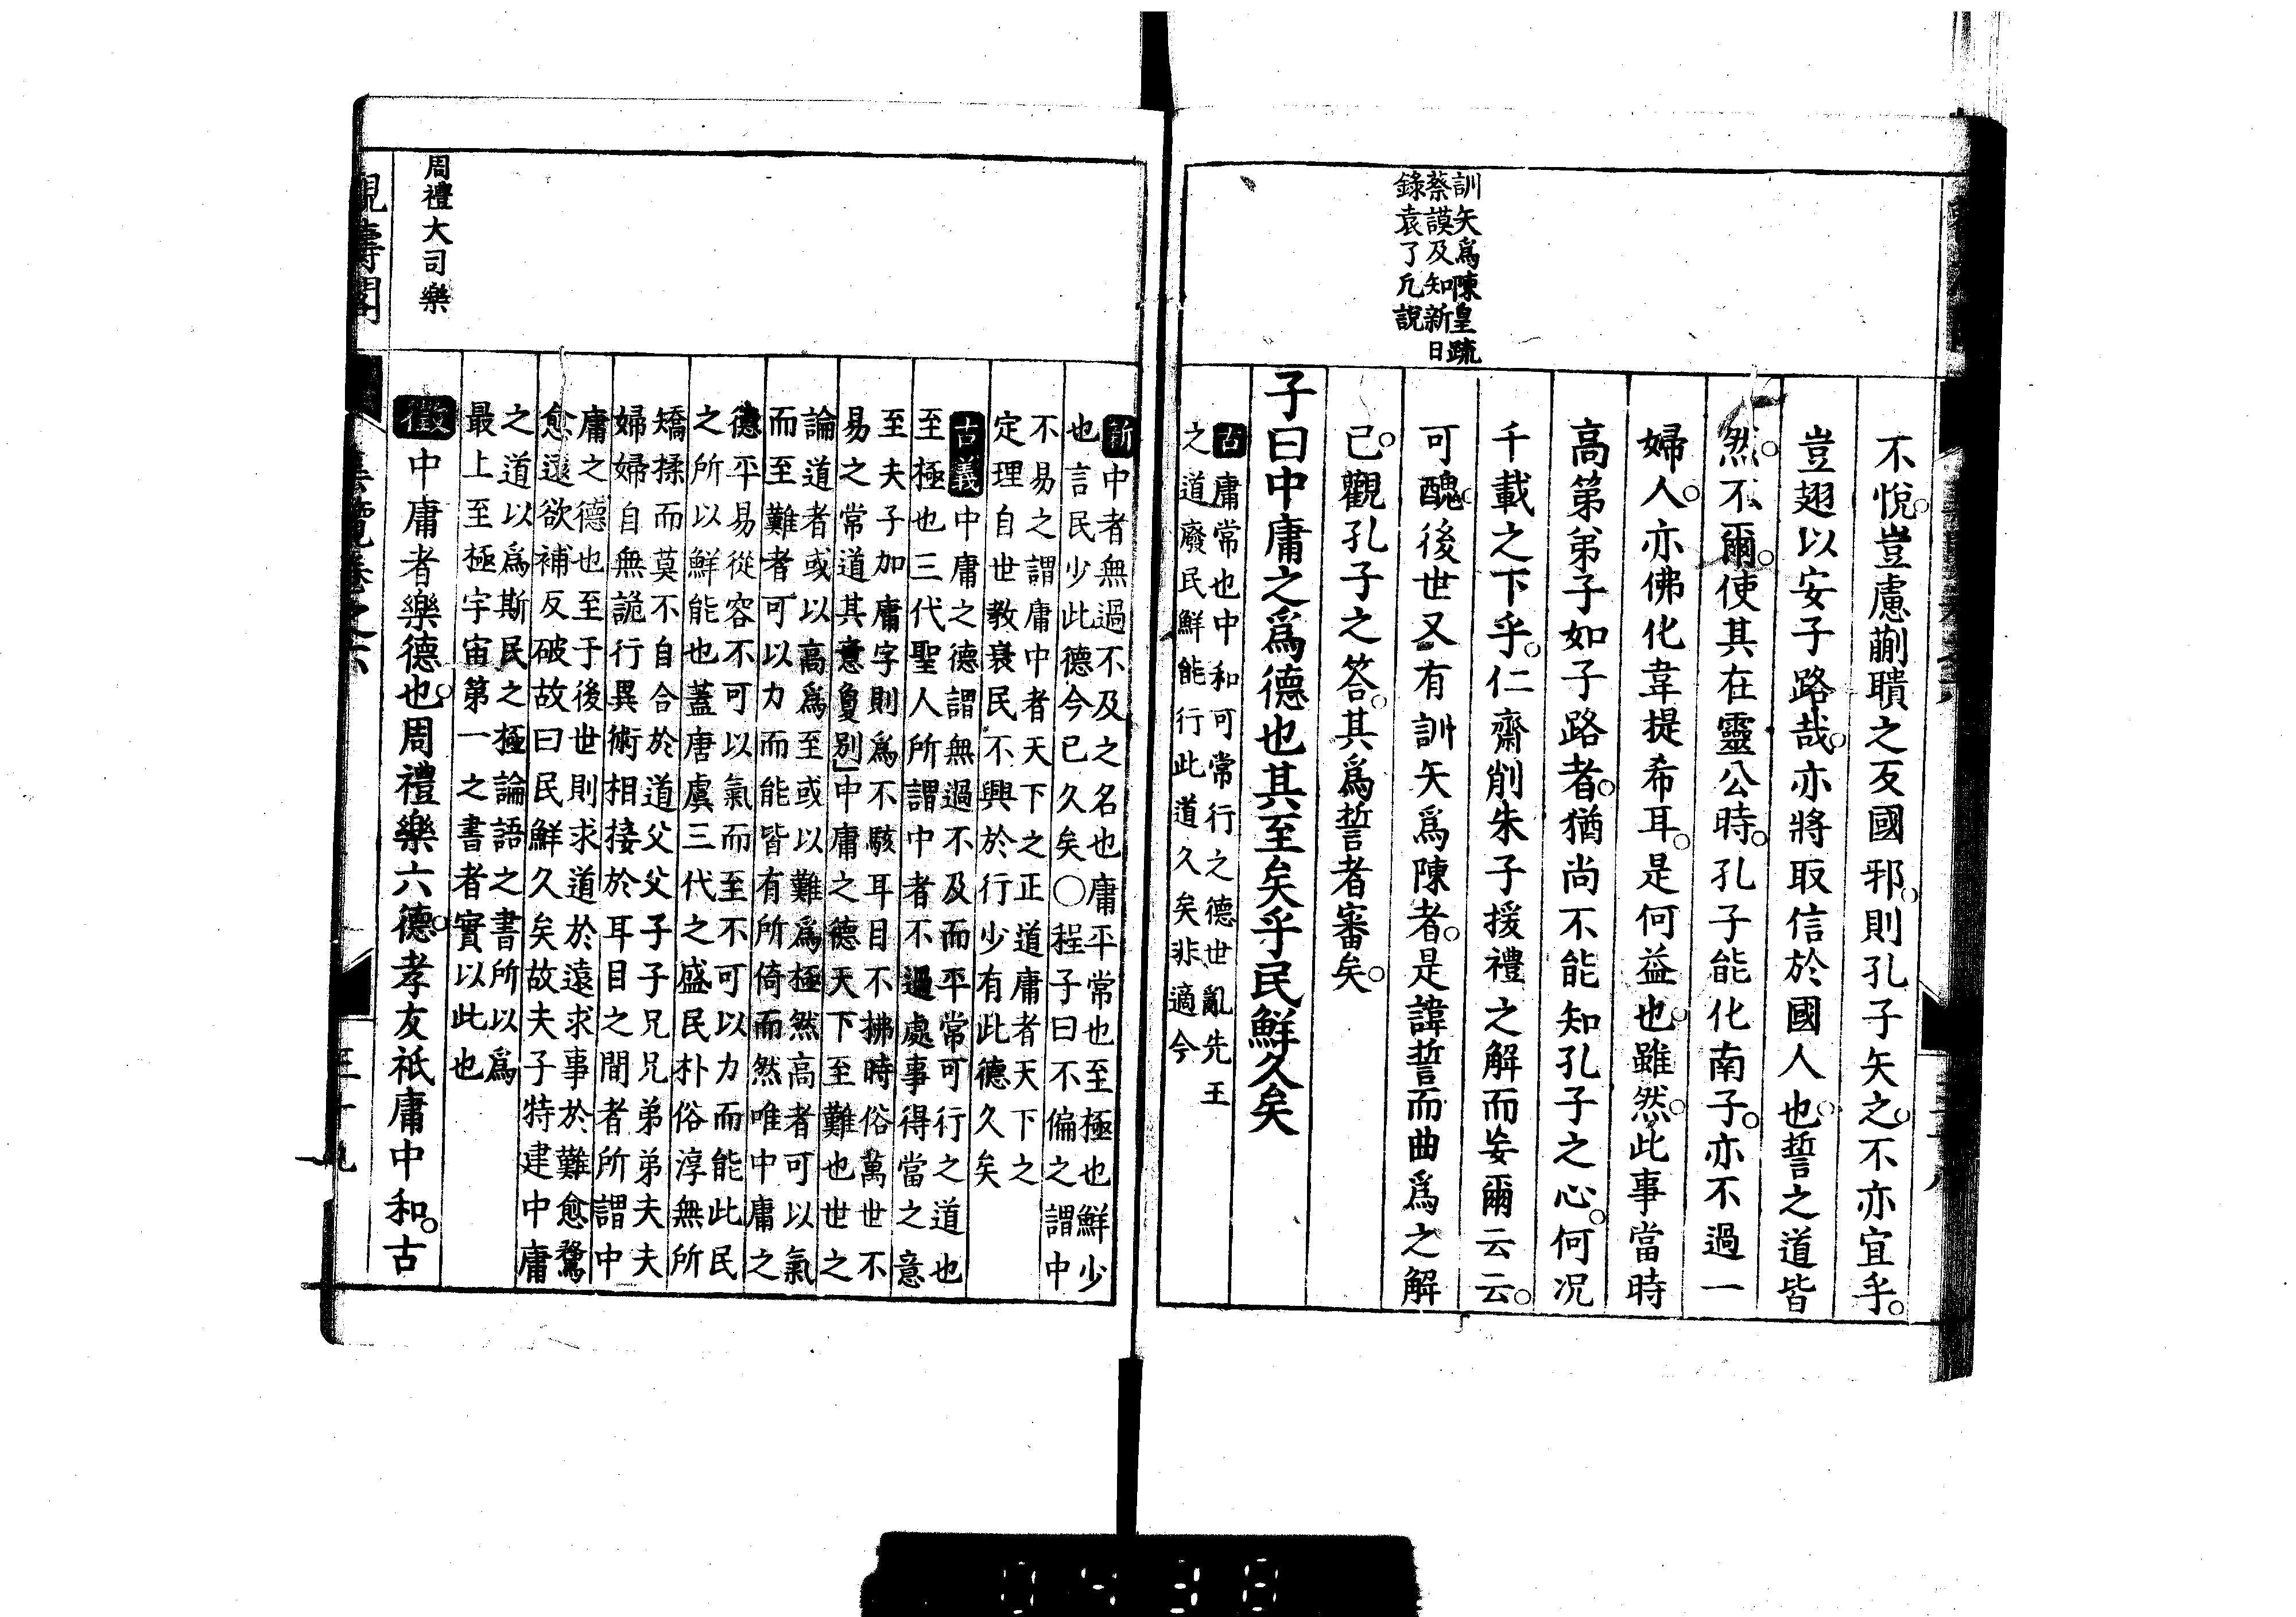 訓矢爲陳皇疏
蔡謨及知新日
錄袁了凡說
不悅。豈慮蒯聵之反國邪。則孔子矢之。不亦宜乎。
豈翅以安子路哉。亦將取信於國人也。誓之道皆
然。不爾。使其在靈公時。孔子能化南子。亦不過一
婦人。亦佛化韋提希耳。是何益也。雖然。此事當時
高第弟子如子路者。猶尚不能知孔子之心。何況
千載之下乎。仁齋削朱子援禮之解而妄爾云云。
可醜。後世又有訓矢爲陳者。是諱誓而曲爲之解
已。觀孔子之答。其爲誓者審矣。
子曰中庸之爲德也其至矣乎民鮮久矣
古庸常也中和可常行之德世亂先王
之道廢民鮮能行此道久矣非適今
新中者無過不及之名也庸平常也至極也鮮少
也言民少此德今已久矣○程子曰不偏之謂中
不易之謂庸中者天下之正道庸者天下之
定理自世教衰民不興於行少有此德久矣
古義中庸之德謂無過不及而平常可行之道也
至極也三代聖人所謂中者不過處事得當之意
至夫子加庸字則爲不駭耳目不拂時俗萬世不
易之常道其意夐別」中庸之德天下至難也世之
論道者或以高爲至或以難爲極然高者可以氣
而至難者可以力而能皆有所倚而然唯中庸之
德平易從容不可以氣而至不可以力而能此民
之所以鮮能也蓋唐虞三代之盛民朴俗淳無所
矯揉而莫不自合於道父父子子兄兄弟弟夫夫
婦婦自無詭行異術相接於耳目之間者所謂中
庸之德也至于後世則求道於遠求事於難愈騖
愈遠欲補反破故曰民鮮久矣故夫子特建中庸
之道以爲斯民之極論語之書所以爲
最上至極宇宙第一之書者實以此也
周禮大司樂
徵中庸者樂德也。周禮樂六德。孝友祗庸中和。古